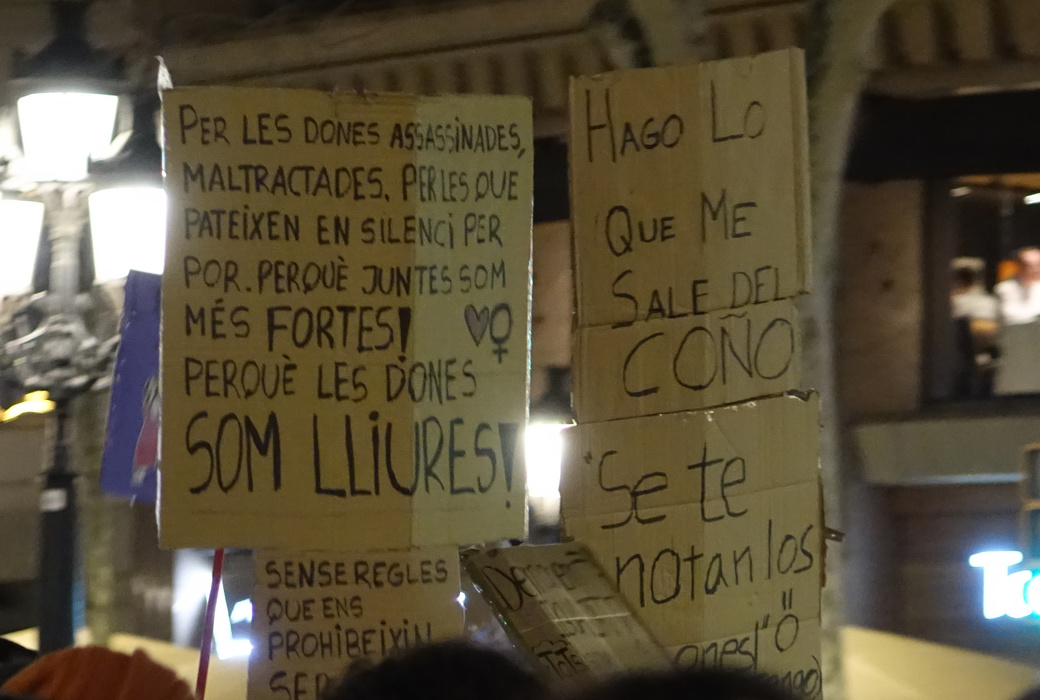 PER LES DONES ASSASSINADES,
MALTRACTADES. PER LES QUE
PATEIXEN EN SILENCI PER
POR. PERQUÈ JUNTES SOM
MÉS FORTES! ♥♀
PERQUÈ LES DONES
SOM LLIURES!
SENSE REGLES
QUE ENS
PROHIBEIXIN
SER
HAGO LO
QUE ME
SALE DEL
COÑO
"Se te
notan los